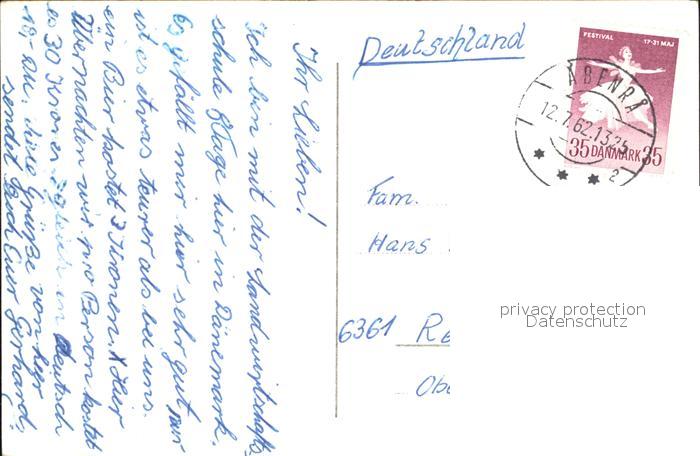 Ihr Lieben!
Ich bin mit der Landwirtschafts
schule 8 Tage hier in Dänemark.
Es gefällt mir hier sehr gut nur
ist es etwas teurer als bei uns.
ein Bier kostet 3 Kronen. Hier
Übernachten wir pro Person kostet
es 30 Kronen in Deutsch
18,- DM. Viele Grüße von hier
sendet Euch Euer Gerhard.
Deutschland
FESTIVAL 17-31 MAJ
ÅBENRÅ
12.7.62.13.25
35 DANMARK 35
2
Fam.
Hans
6361 Re
Obe
privacy protection
Datenschutz